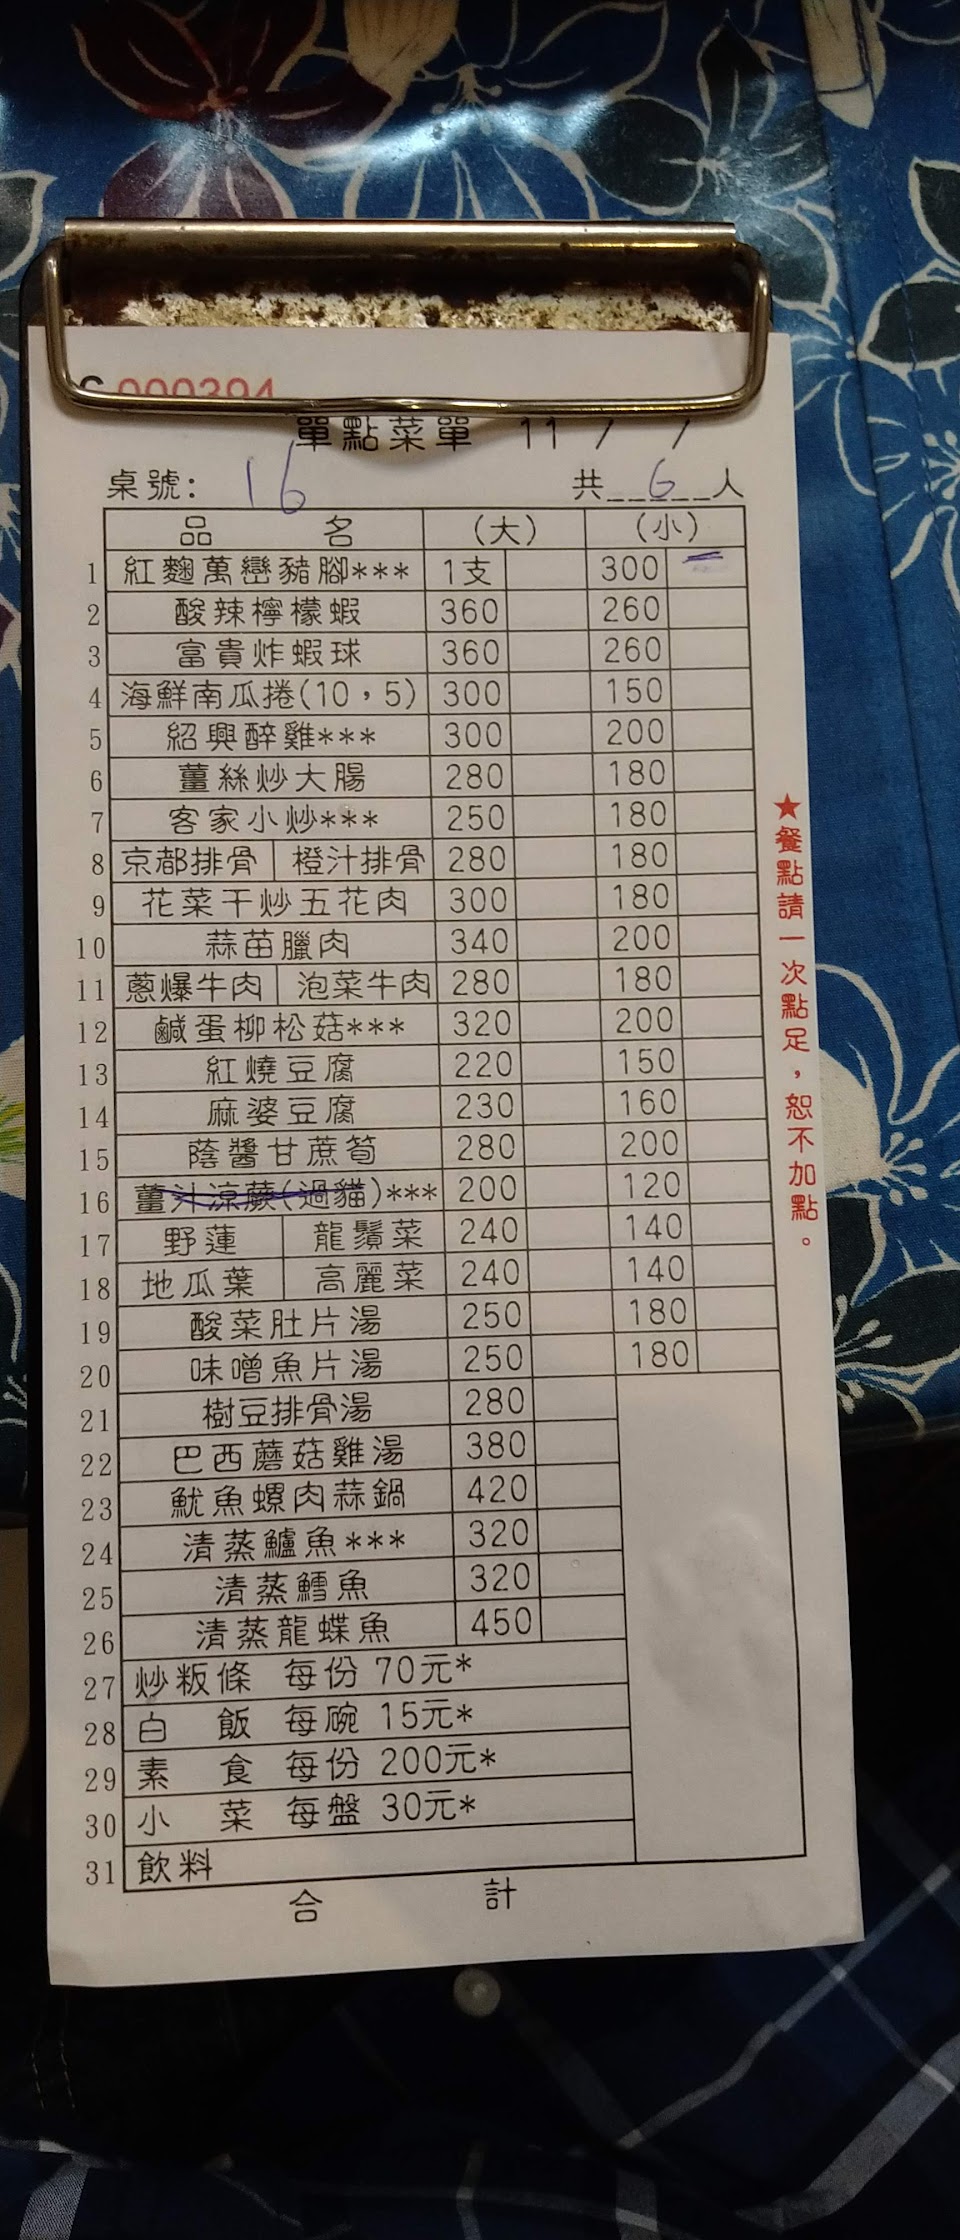 000394
單點菜單 11 / /
桌號: 16 共__6__人
品 名 (大) (小)
1 紅麴萬巒豬腳*** 1支 300
2 酸辣檸檬蝦 360 260
3 富貴炸蝦球 360 260
4 海鮮南瓜捲(10，5) 300 150
5 紹興醉雞*** 300 200
6 薑絲炒大腸 280 180
7 客家小炒*** 250 180
8 京都排骨 橙汁排骨 280 180
9 花菜干炒五花肉 300 180
10 蒜苗臘肉 340 200
11 蔥爆牛肉 泡菜牛肉 280 180
12 鹹蛋柳松菇*** 320 200
13 紅燒豆腐 220 150
14 麻婆豆腐 230 160
15 蔭醬甘蔗筍 280 200
16 薑汁涼蕨(過貓)*** 200 120
17 野蓮 龍鬚菜 240 140
18 地瓜葉 高麗菜 240 140
19 酸菜肚片湯 250 180
20 味噌魚片湯 250 180
21 樹豆排骨湯 280
22 巴西蘑菇雞湯 380
23 魷魚螺肉蒜鍋 420
24 清蒸鱸魚*** 320
25 清蒸鱈魚 320
26 清蒸龍蝶魚 450
27 炒粄條 每份 70元*
28 白 飯 每碗 15元*
29 素 食 每份 200元*
30 小 菜 每盤 30元*
31 飲料
合 計
★餐點請一次點足，恕不加點。